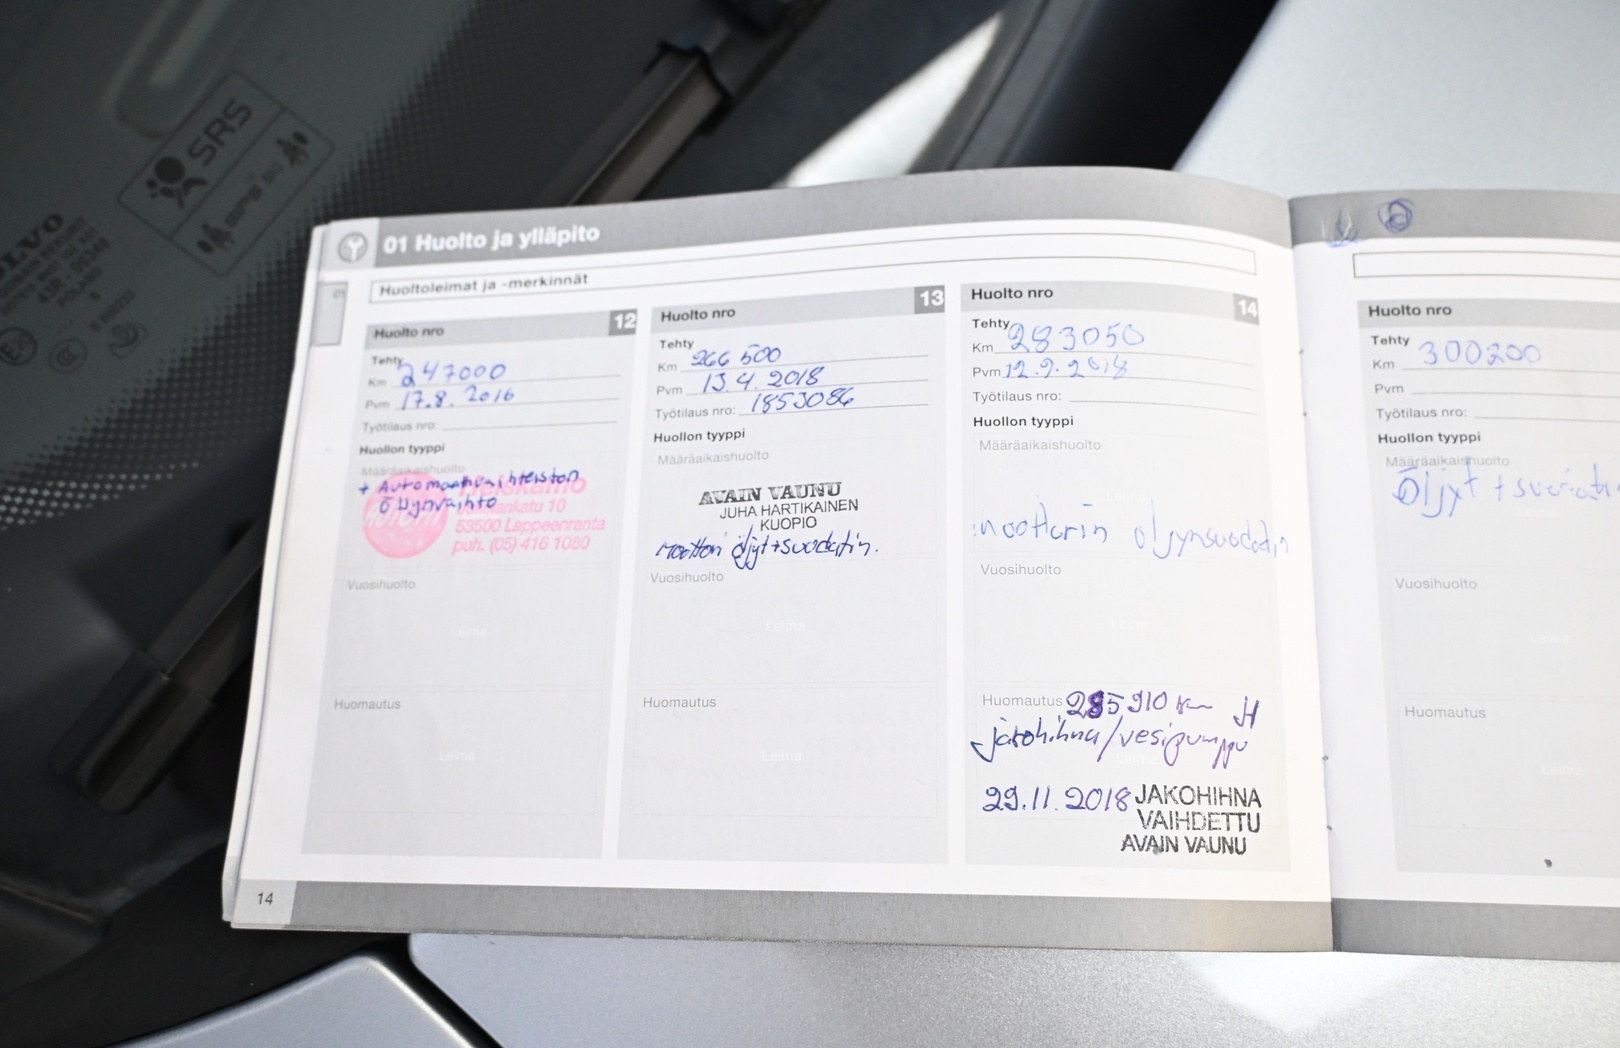 SRS
VOLVO
43R-00049
POLAND
01 Huolto ja ylläpito
01
Huoltoleimat ja -merkinnät
Huolto nro 12
Tehty
Km 247000
Pvm 17.8.2016
Työtilaus nro:
Huollon tyyppi
Määräaikaishuolto
+ Automaattivaihteiston
öljynvaihto
53500 Lappeenranta
puh. (05) 416 1080
Vuosihuolto
Leima
Huomautus
Leima
Huolto nro 13
Tehty
Km 266 500
Pvm 13.4.2018
Työtilaus nro: 1853086
Huollon tyyppi
Määräaikaishuolto
AVAIN VAUNU
JUHA HARTIKAINEN
KUOPIO
Moottori öljyt+suodatin.
Vuosihuolto
Leima
Huomautus
Leima
Huolto nro 14
Tehty
Km 283050
Pvm 12.9.2018
Työtilaus nro:
Huollon tyyppi
Määräaikaishuolto
Leima
moottorin öljynsuodatin
Vuosihuolto
Leima
Huomautus 285910 km
jakohihna/vesipumppu
Leima
29.11.2018 JAKOHIHNA
VAIHDETTU
AVAIN VAUNU
14
Huolto nro
Tehty
Km 300200
Pvm
Työtilaus nro:
Huollon tyyppi
Määräaikaishuolto
Öljyt + suodatin
Leima
Vuosihuolto
Leima
Huomautus
Leima